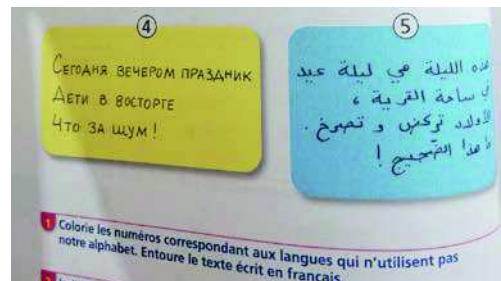 ④
СЕГОДНЯ ВЕЧЕРОМ ПРАЗДНИК
ДЕТИ В ВОСТОРГЕ
ЧТО ЗА ШУМ!
⑤
هذه الليلة هي ليلة عيد
في ساحة القرية ،
الأولاد تركض و تصرخ .
ما هذا الضجيج !
1 Colorie les numéros correspondant aux langues qui n'utilisent pas
notre alphabet. Entoure le texte écrit en français.